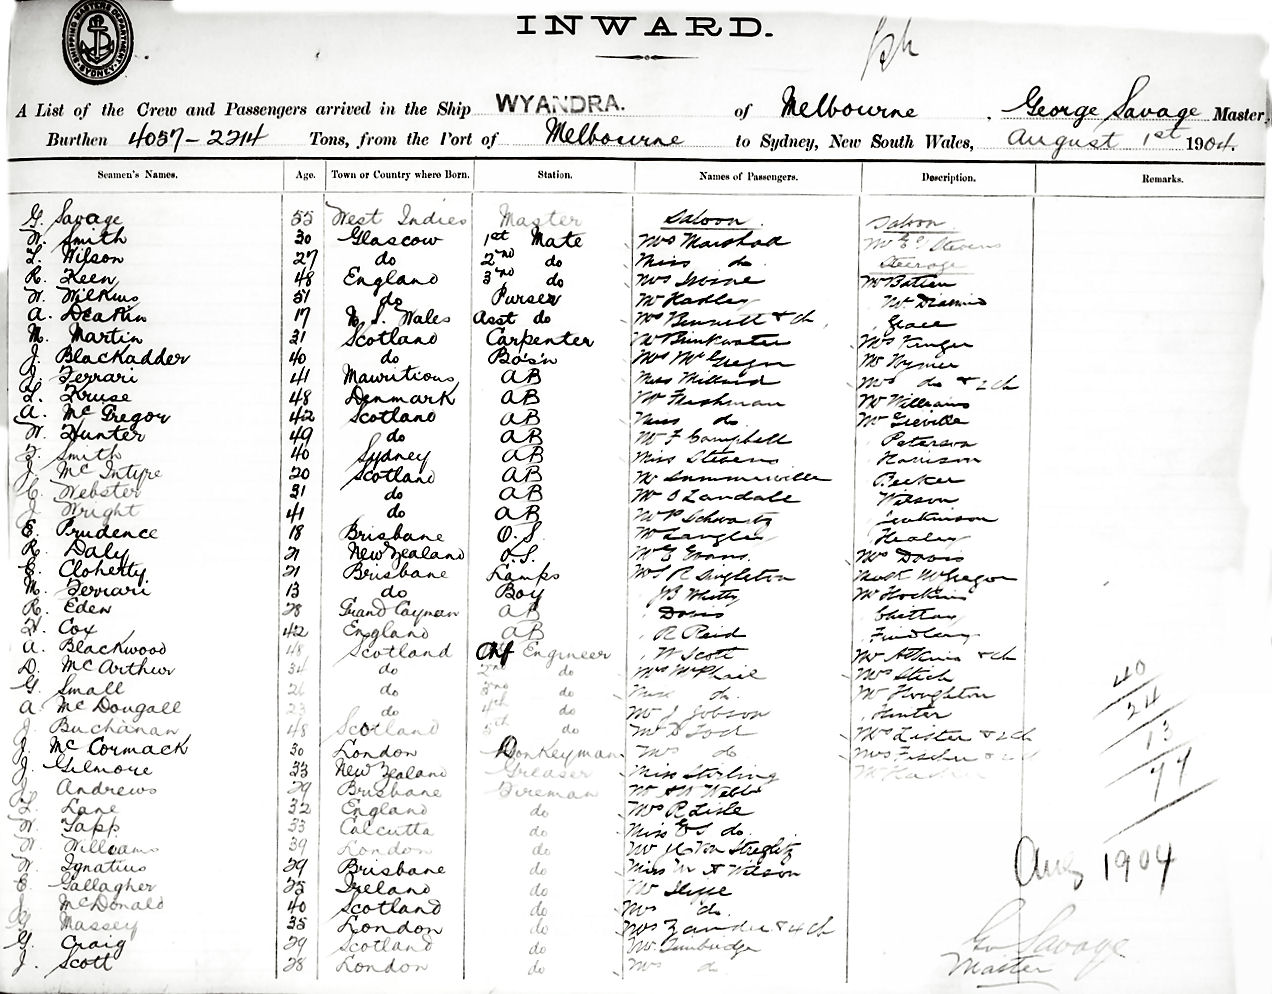 SHIPPING MASTERS DEPARTMENT SYDNEY
INWARD.
A List of the Crew and Passengers arrived in the Ship WYANDRA. of Melbourne, George Savage Master,
Burthen 4057-2214 Tons, from the Port of Melbourne to Sydney, New South Wales, August 1st 1904.
Seamen's Names. Age. Town or Country where Born. Station. Names of Passengers. Description. Remarks.
G. Savage 55 West Indies Master Saloon Saloon
W. Smith 30 Glascow 1st Mate Mrs Marshad Stevens
L. Wilson 27 do 2nd do Miss do Steerage
R. Keen 48 England 3rd do Mrs Irvine Mr Batten
W. Wilkins 51 do Purser Mr Hadley Mr
A. Deakin 17 N. S. Wales Asst do Mrs Bennett & ch Grace
M. Martin 31 Scotland Carpenter Mr Mrs
J. Blackadder 40 do Bo's'n Mrs McGregor Mr Wymer
J. Ferrari 41 Mauritious AB Miss Millard Mrs do & 2 ch
L. Kruse 48 Denmark AB Mr Freshman Mr Williams
A. McGregor 42 Scotland AB Miss do Mr Greville
W. Hunter 49 do AB Mr F Campbell Peterson
F. Smith 40 Sydney AB Miss Stevens Harrison
J. McIntyre 20 Scotland AB Mr Summerville Becker
C. Webster 31 do AB Mr O Landale Wilson
J. Wright 41 do AB Mr P Schwartz Jenkinson
E. Prudence 18 Brisbane O.S. Mr Langlis Healey
R. Daly 21 New Zealand O.S. Mr G Evans Mrs Davis
E. Cloherty 21 Brisbane Lamps Mrs R Singleton Mast McGregor
M. Ferrari 13 do Boy JB Whitty Mr Hockins
R. Eden 28 Grand Cayman AB Davis Chittay
H. Cox 42 England AB R Reid Findlay
A. Blackwood 48 Scotland Chf Engineer W Scott Mr Atkins & ch
D. McArthur 34 do 2nd do Mrs McPhail Mrs Stick
G. Small 26 do 3rd do Miss do Mr Houghton
A McDougall 23 do 4th do Mr J Jobson Hunter
J. Buchanan 48 Scotland 5th do Mr D Tod Mrs Lister & 2 ch
J. McCormack 30 London Donkeyman Mrs do Mrs Fischer & 2 ch
J. Gilmore 33 New Zealand Greaser Miss Stirling Mr
J. Andrews 29 Brisbane Fireman Mr A W Webb
L. Lane 32 England do Mrs R Lisle
W. Tapp 33 Calcutta do Miss do
W. Williams 39 London do Mr Von Streglitz
W. Ignatius 29 Brisbane do Miss M A Wilson
E. Gallagher 25 Ireland do Mr
J. McDonald 40 Scotland do Mrs do
Massey 35 London do Mrs Zander & 4 ch
G. Craig 29 Scotland do Mr Tunbridge
J. Scott 28 London do Mrs do
40
24
13
77
Aug 1904
Geo Savage
Master